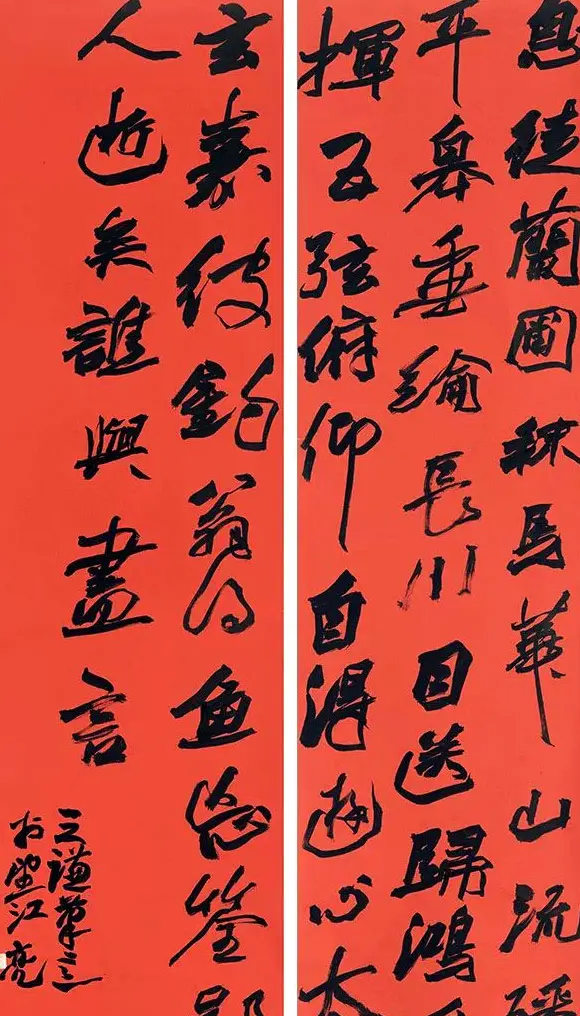 息徒蘭圃秣馬華山流磻
平皋垂綸長川目送歸鴻手
揮五弦俯仰自得遊心太
玄嘉彼釣翁得魚忘筌郢
人逝矣誰與盡言
三謙
於望江